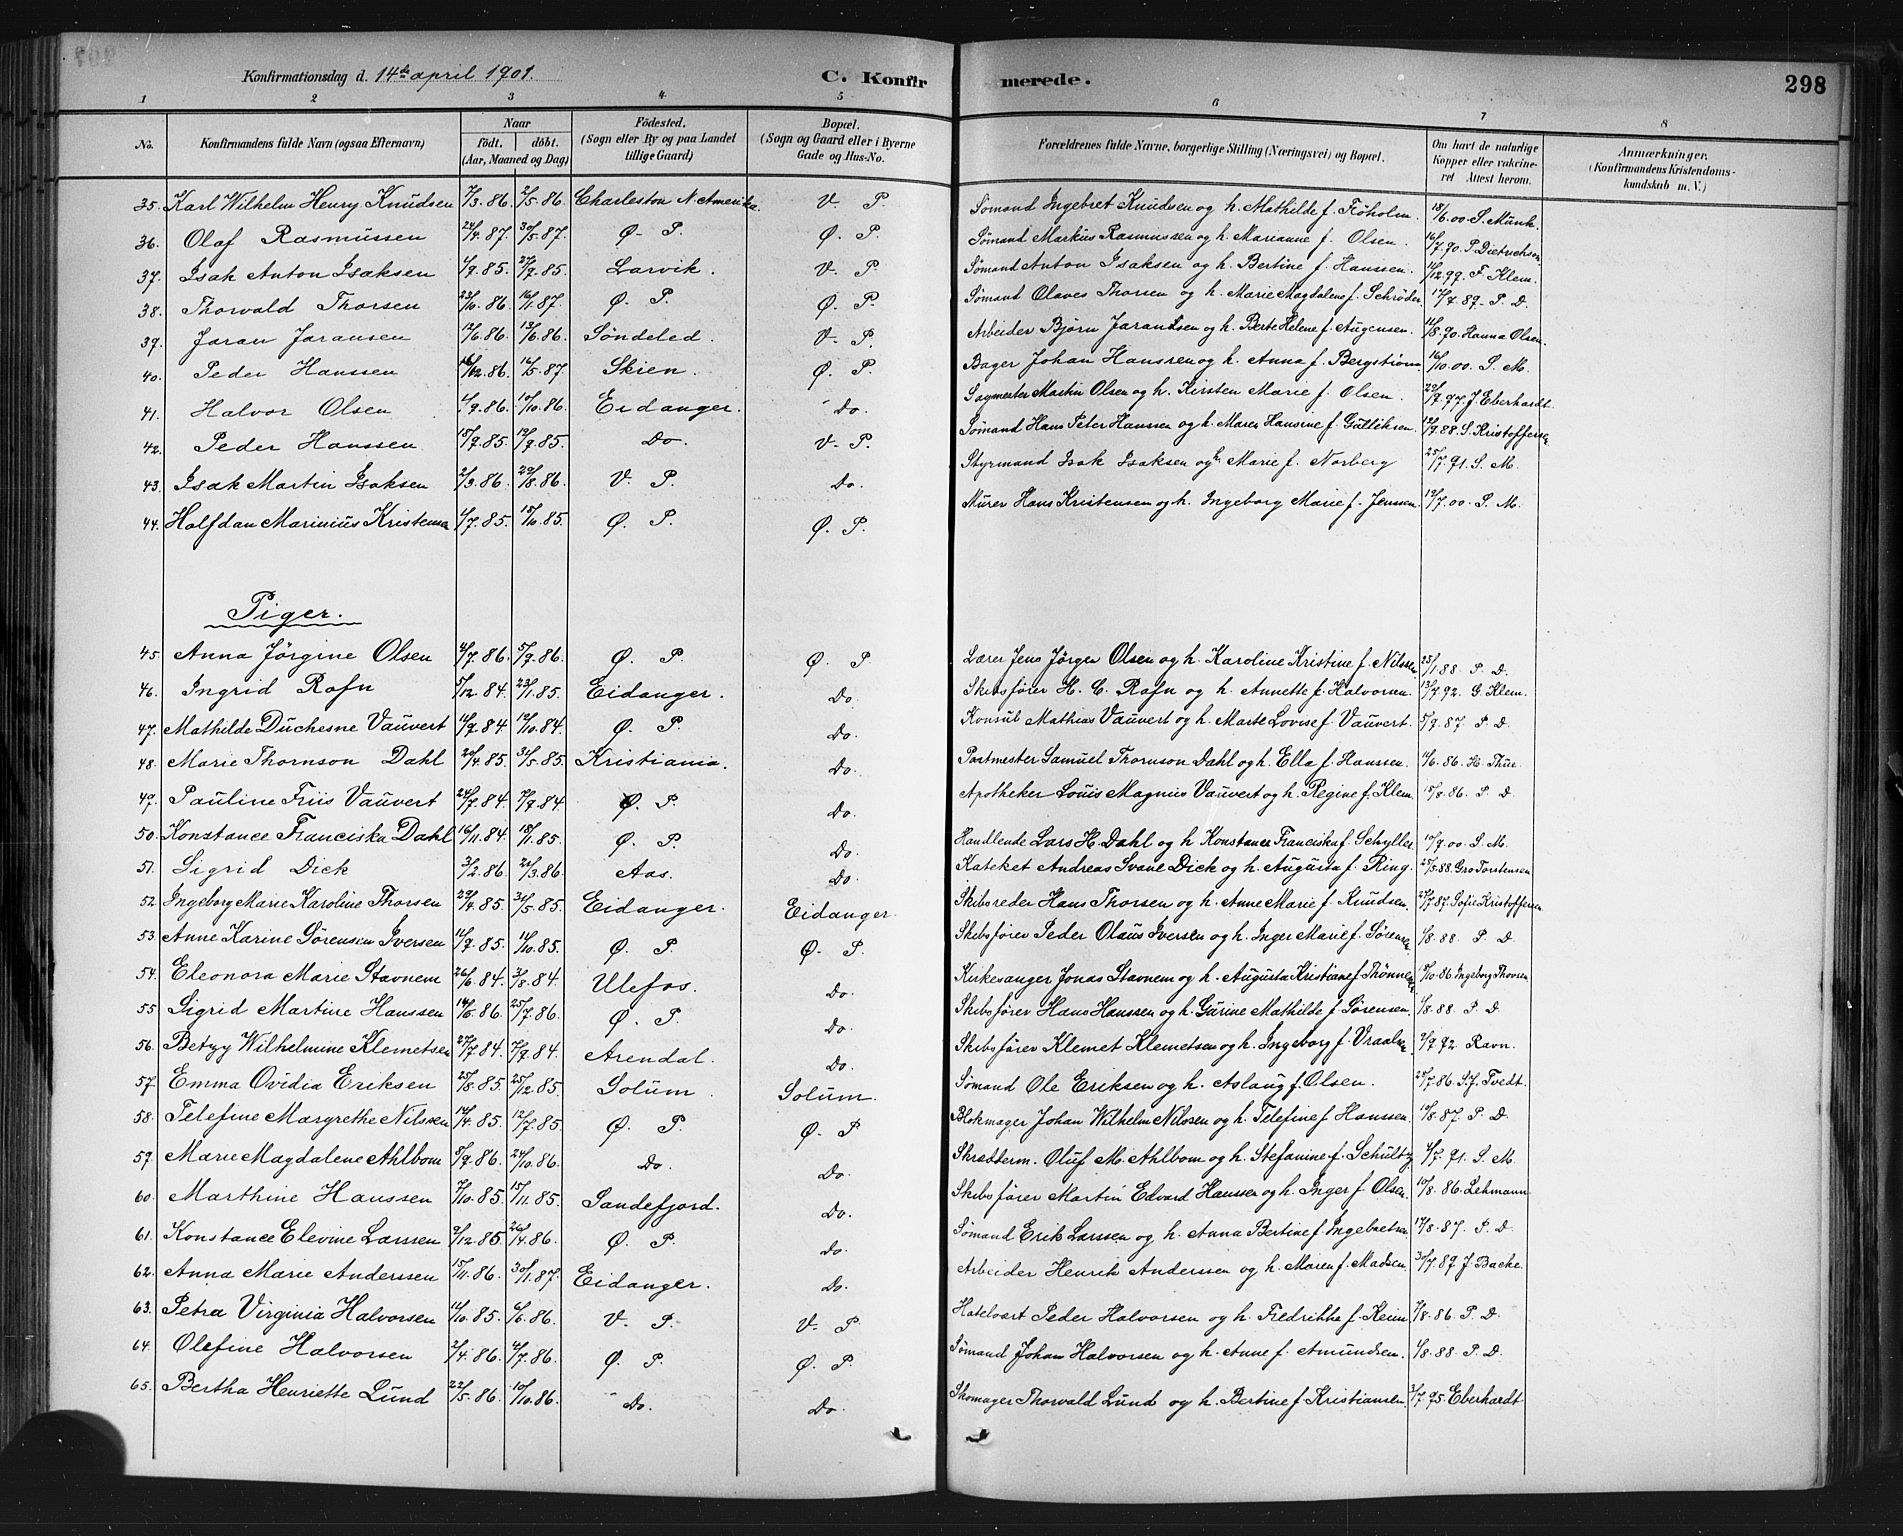 298
Konfirmationsdag d. 14de april 1901. C. Konfir merede.
1 2 3 4 5 6 7 8
No. Konfirmandens fulde Navn (ogsaa Efternavn) Naar födt. döbt. (Aar, Maaned og Dag) Födested. (Sogn eller By og paa Landet tillige Gaard) Bopæl. (Sogn og Gaard eller i Byerne Gade og Hus-No. Forældrenes fulde Navne, borgerlige Stilling (Næringsvei) og Bopæl. Om havt de naturlige Kopper eller vakcineret Attest herom. Anmærkninger. (Konfirmandens Kristendomskundskab m. V.)
35. Karl Wilhelm Henry Knudsen 7/3.86. 2/5.86. Charleston N. Amerika. V. P. Sømand Ingebret Knudsen og h. Mathilde f. Frøholm. 18/6.00. S. Munk.
36. Olaf Rasmussen 24/4.87. 30/5.87. Ø. P. Ø. P. Sømand Markus Rasmussen og h. Marianne f. Olsen. 16/7.90. P. Dietrichson
37. Isak Anton Isaksen 4/9.85. 27/9.85. Larvik. V. P. Sømand Anton Isaksen og h. Bertine f. Hanssen. 11/12.99. F. Klem.
38. Thorvald Thorsen 23/10.86. 16/1.87. Ø. P. Ø. P. Sømand Olaves Thorsen og h. Marie Magdalene f. Schrøder 17/7.89. P. D.
39. Jaran Jaransen 12/6.86. 13/6.86. Søndeled. V. P. Arbeider Bjørn Jarandsen og h. Berte Helene f. Augensen. 11/8.90. Hanna Olsen.
40. Peder Hanssen 16/12.86. 14/5.87. Skien. Ø. P. Bager Johan Hanssen og h. Anna f. Bergstrøm 16/10.00. S. M.
41. Halvor Olsen 4/9.86. 10/10.86. Eidanger. Do. Sagmester Martin Olsen og h. Kirsten Marie f. Olsen. 29/9.97. J. Eberhardt.
42. Peder Hanssen 18/9.85. 19/9.85. Do. V. P. Sømand Hans Peter Hanssen og h. Maren Hansine f. Gulliksen. 12/9.88. S. Kristoffersen
43. Isak Martin Isaksen 2/3.86. 29/8.86. V. P. Do. Styrmand Isak Isaksen og h. Marie f. Norberg 25/7.91. S. M.
44. Halfdan Marinius Kristensen 4/7.85. 18/10.85. Ø. P. Ø. P. Murer Hans Kristensen og h. Ingeborg Marie f. Jenssen. 19/7.00. S. M.
Piger.
45. Anna Jörgine Olsen 4/7.86. 5/9.86. Ø. P. Ø. P. Lærer Jens Jörgen Olsen og h. Karoline Kristine f. Nilssen 25/1.88 P. D.
46. Ingrid Rafn 5/12.84. 23/1.85. Eidanger. Do. Skibsfører H. C. Rafn og h. Annette f. Halvorsen. 13/7.92. G. Klem.
47. Mathilde Duchesne Vauvert 14/9.84. 19/10.84. Ø. P. Do. Konsul Mathias Vauvert og h. Marte Lovise f. Vauvert. 5/9.87 P. D.
48. Marie Thornson Dahl 20/4.85. 31/5.85. Kristiania. Do. Postmester Samuel Thornson Dahl og h. Ella f. Hanssen. 16/6.86. H. Thue.
49. Pauline Friis Vauvert 24/7.84. 7/9.84. Ø. P. Do. Apotheker Louis Magnus Vauvert og h. Regine f. Klem. 15/8.86. P. D.
50. Konstance Franciska Dahl 16/11.84. 18/1.85. Ø. P. Do. Handlende Lars H. Dahl og h Konstance Franciska f. Schyller 10/9.00. S. M.
51. Sigrid Dick 3/2.86. 24/3.86. Aas. Do. Kateket Andreas Svane Dick og h. Augusta f. Ring. 25/5.88. Gro Torstensen
52. Ingeborg Marie Karoline Thorsen 29/4.85. 31/5.85. Eidanger. Eidanger. Skibsreder Hans Thorsen og h. Anne Marie f. Knudsen. 27/7.87. Sofie Kristoffersen
53. Anne Karine Sörensen Iversen 14/9.85. 11/10.85. Ø. P. Ø. P. Skibsfører Peder Olaus Iversen og h. Inger Marie f. Sørensen 1/8.88 P. D.
54. Eleonora Marie Stavnem 26/6.84. 3/8.84. Ulefos. Do. Kirkesanger Jonas Stavnem og h. Augusta Kristiane f. Thönnesen 10/10.86. Ingeborg Thorsen
55. Sigrid Martine Hanssen 14/6.86. 25/7.86. Ø. P. Do. Skibsfører Hans Hanssen og h. Gurine Mathilde f. Sørensen. 1/8.88 P. D.
56. Betzy Wilhelmine Klemetsen 27/7.84. 7/9.84. Arendal. Do. Skibsfører Klemet Klemetsen og h. Ingeborg f. Vraalsen 9/9.92 Ravn.
57. Emma Ovidia Eriksen 25/8.85. 25/12.85. Solum. Solum. Sømand Ole Eriksen og h. Aslaug f. Olsen. 25/7.86. S. J. Tvedt.
58. Telefine Margrethe Nilssen 14/4.85. 12/7.85. Ø. P. Ø. P Blokmager Johan Wilhelm Nilssen og h. Telefine f. Hanssen. 10/8.87. P. D.
59. Marie Magdalene Ahlbom 8/9.86. 24/10.86. Do. Do. Skrædderm. Oluf M. Ahlbom og h. Stefanine f. Schultz 4/7.91. S. M.
60. Marthine Hanssen 7/10.85. 15/11.85. Sandefjord. Do. Skibsfører Martin Edvard Hanssen og h. Inger f. Olsen. 10/8.86. Lehmann
61. Konstance Elevine Larssen 9/12.85. 26/4.86. Ø. P. Do. Sømand Erik Larssen og h. Anna Bertine f. Ingebretsen 17/8.87. P. D.
62. Anna Marie Anderssen 15/11.86. 30/1.87. Eidanger. Do. Arbeider Henrik Anderssen og h. Maren f. Madsen 30/7.89. J. Bache.
63. Petra Virginia Halvorsen 11/10.85. 6/6.86. V. P. V. P. Hotelvært Peder Halvorsen og h. Fredrikke f. Keim 7/8.86. P. D.
64. Olefine Halvorsen 2/4.86. 4/7.86. Ø. P. Ø. P. Sømand Johan Halvorsen og h. Anne f. Amundsen. 1/8.88. P. D.
65. Bertha Henriette Lund 22/5.86. 10/10.86. Do. Do. Skomager Thorvald Lund og h. Bertine f. Kristiansen 3/7.95. Eberhardt